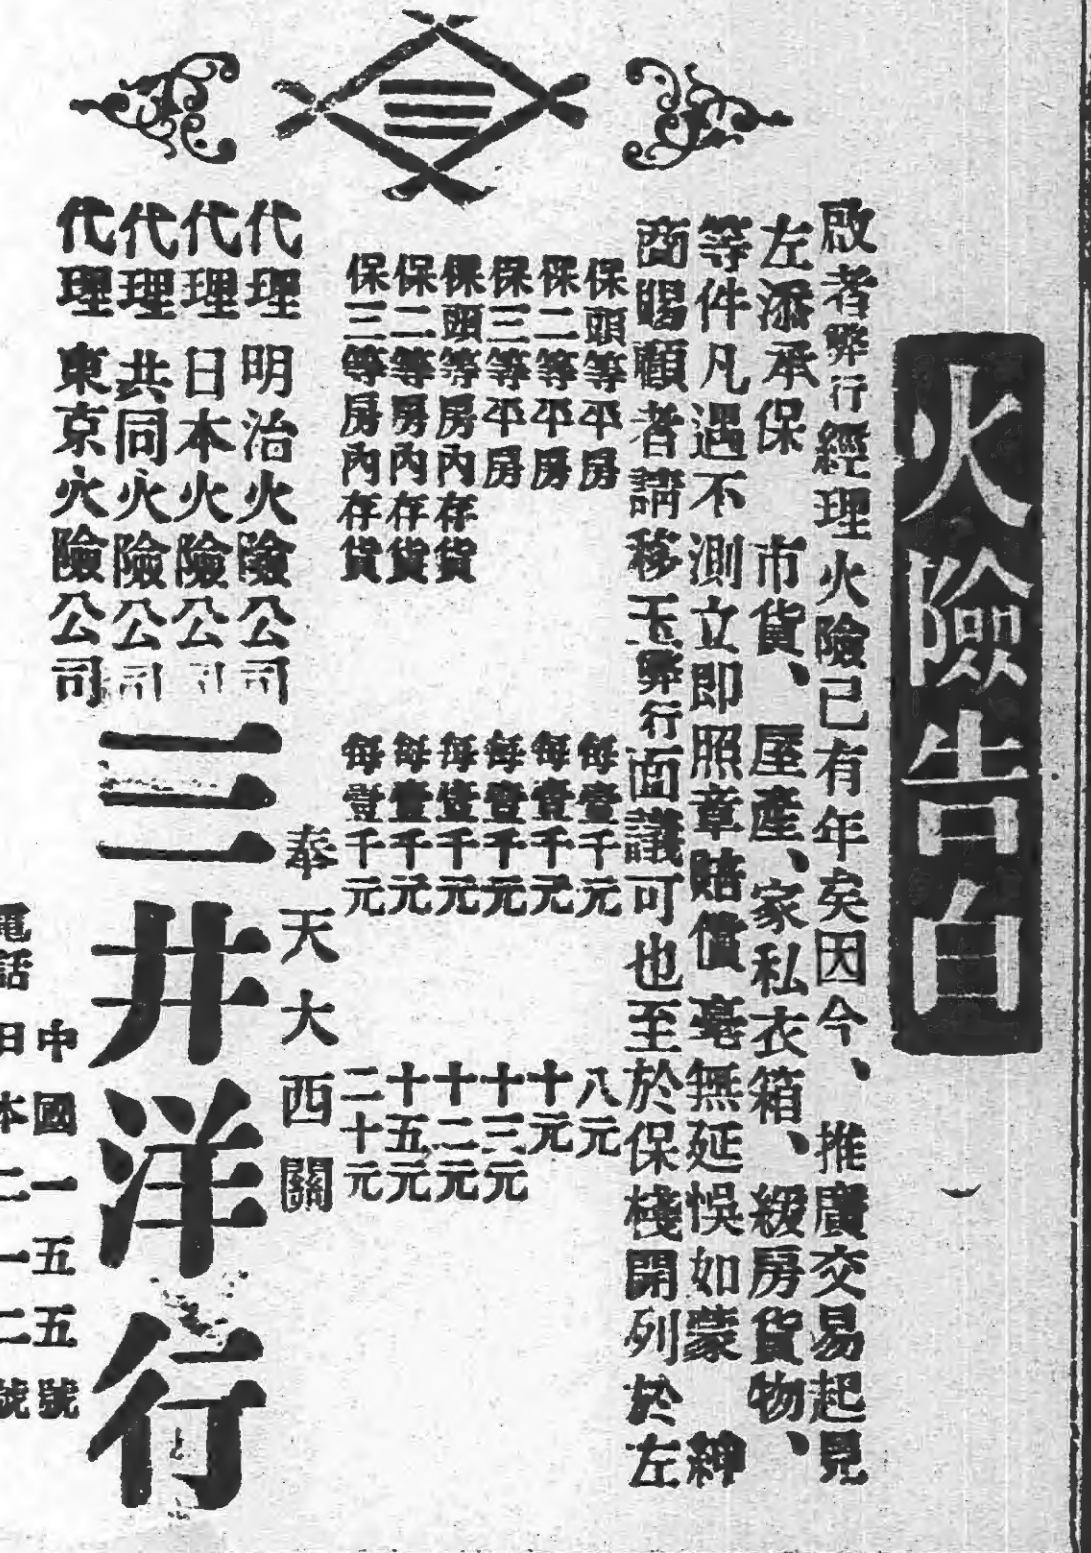 火險告白
啟者弊行經理火險已有年矣因今、推廣交易起見
左添承保 市貨、屋產、家私衣箱、緞房貨物、
等件凡遇不測立即照章賠償毫無延悞如蒙 紳
商賜顧者請移玉弊行面議可也至於保棧開列於左
保頭等平房 每壹千元 八元
保二等平房 每壹千元 十元
保三等平房 每壹千元 十三元
保頭等房內存貨 每壹千元 十二元
保二等房內存貨 每壹千元 十五元
保三等房內存貨 每壹千元 二十元
代理 明治火險公司
代理 日本火險公司
代理 共同火險公司
代理 東京火險公司
奉天大西關
三井洋行
中國一五五號
電話 日本二一二號